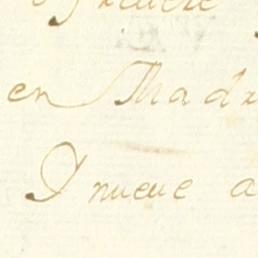 en Madr
I nueue a